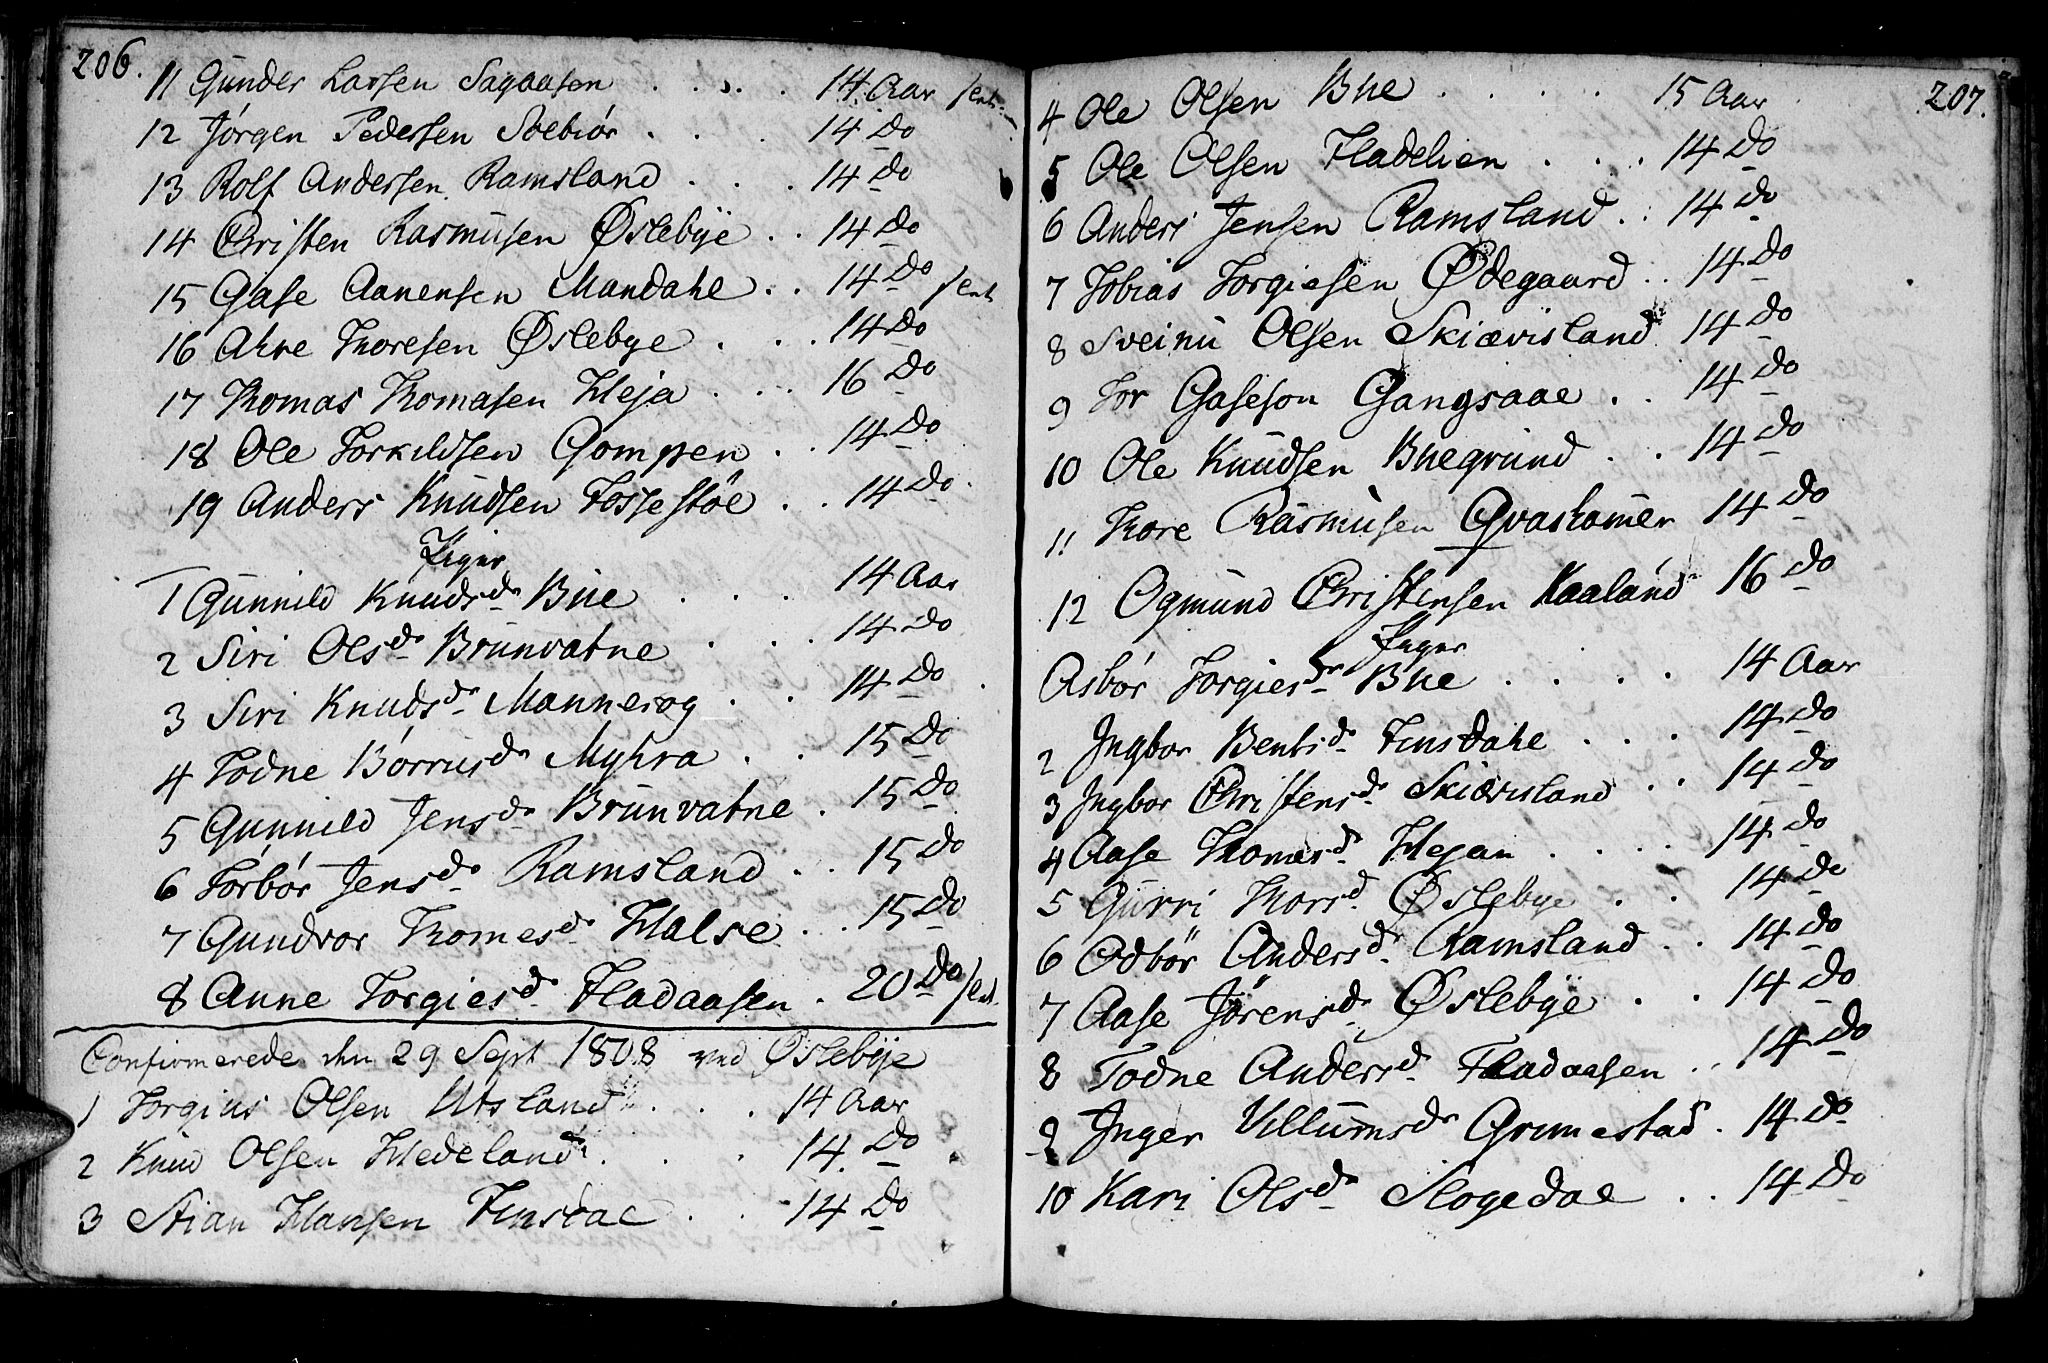 206.
11 Gunder Larsen Sagaasen . . . . 14 Aar
12 Jørgen Pedersen Soebiør . . . 14 Do
13 Rolf Andersen Ramsland . . . 14 Do
14 Christen Rasmusen Øslebye . . 14 Do
15 Gase Aanensen Mandahl . . 14 Do
16 Ahne Thoresen Øslebye . . . 14 Do
17 Thomas Thomasen Heja . . . 16 Do
18 Ole Torkildsen Gompen . . 14 Do
19 Anders Knudsen Fossestøe . . 14 Do
Piger
1 Gunnild Knudsd. Bue . . . 14 Aar
2 Siri Olsd. Brunvatne . . . 14 Do
3 Siri Knudsd. Mannerog . . 14 Do
4 Todne Børrusd. Myhra . . 15 Do
5 Gunnild Jensd. Brunvatne . 15 Do
6 Torbør Jensd. Ramsland . . 15 Do
7 Gundvor Thomesd. Halse . . . 15 Do
8 Anne Torgiesd. Fladaasen . 20 Do
Confirmerede den 29 Sept 1808 ved Øslebye
1 Torgius Olsen Utsland . . . 14 Aar
2 Knud Olsen Hedeland . . . 14 Do
3 Stian Hansen Finsdae . . . 14 Do
207.
4 Ole Olsen Bue . . . . 15 Aar
5 Ole Olsen Fladelien . . . 14 Do
6 Anders Jensen Ramsland . . 14 Do
7 Tobias Torgiesen Ødegaard . . 14 Do
8 Sveinu Olsen Skiævisland 14 Do
9 Tor Gaseson Gangsaae . . 14 Do
10 Ole Knudsen Buegrund . . 14 Do
11 Thore Rasmusen Qvashomer 14 Do
12 Ogmund Christensen Kaaland 16 Do
Piger
Asbør Torgiesdr Bue . . . . 14 Aar
2 Ingbor Bentsd. Finsdahl . . . 14 Do
3 Ingbor Christensd. Skiævisland . . 14 Do
4 Aase Thomesd. Hejan . . . . 14 Do
5 Gurri Thorsd. Øslebye . . 14 Do
6 Odbør Andersd. Ramsland . . 14 Do
7 Aase Jørensd. Øslebye . . 14 Do
8 Todne Andersd. Fladaasen . . 14 Do
9 Inger Villumsd. Grimestad . 14 Do
10 Kari Olsd. Slogedal . . 14 Do